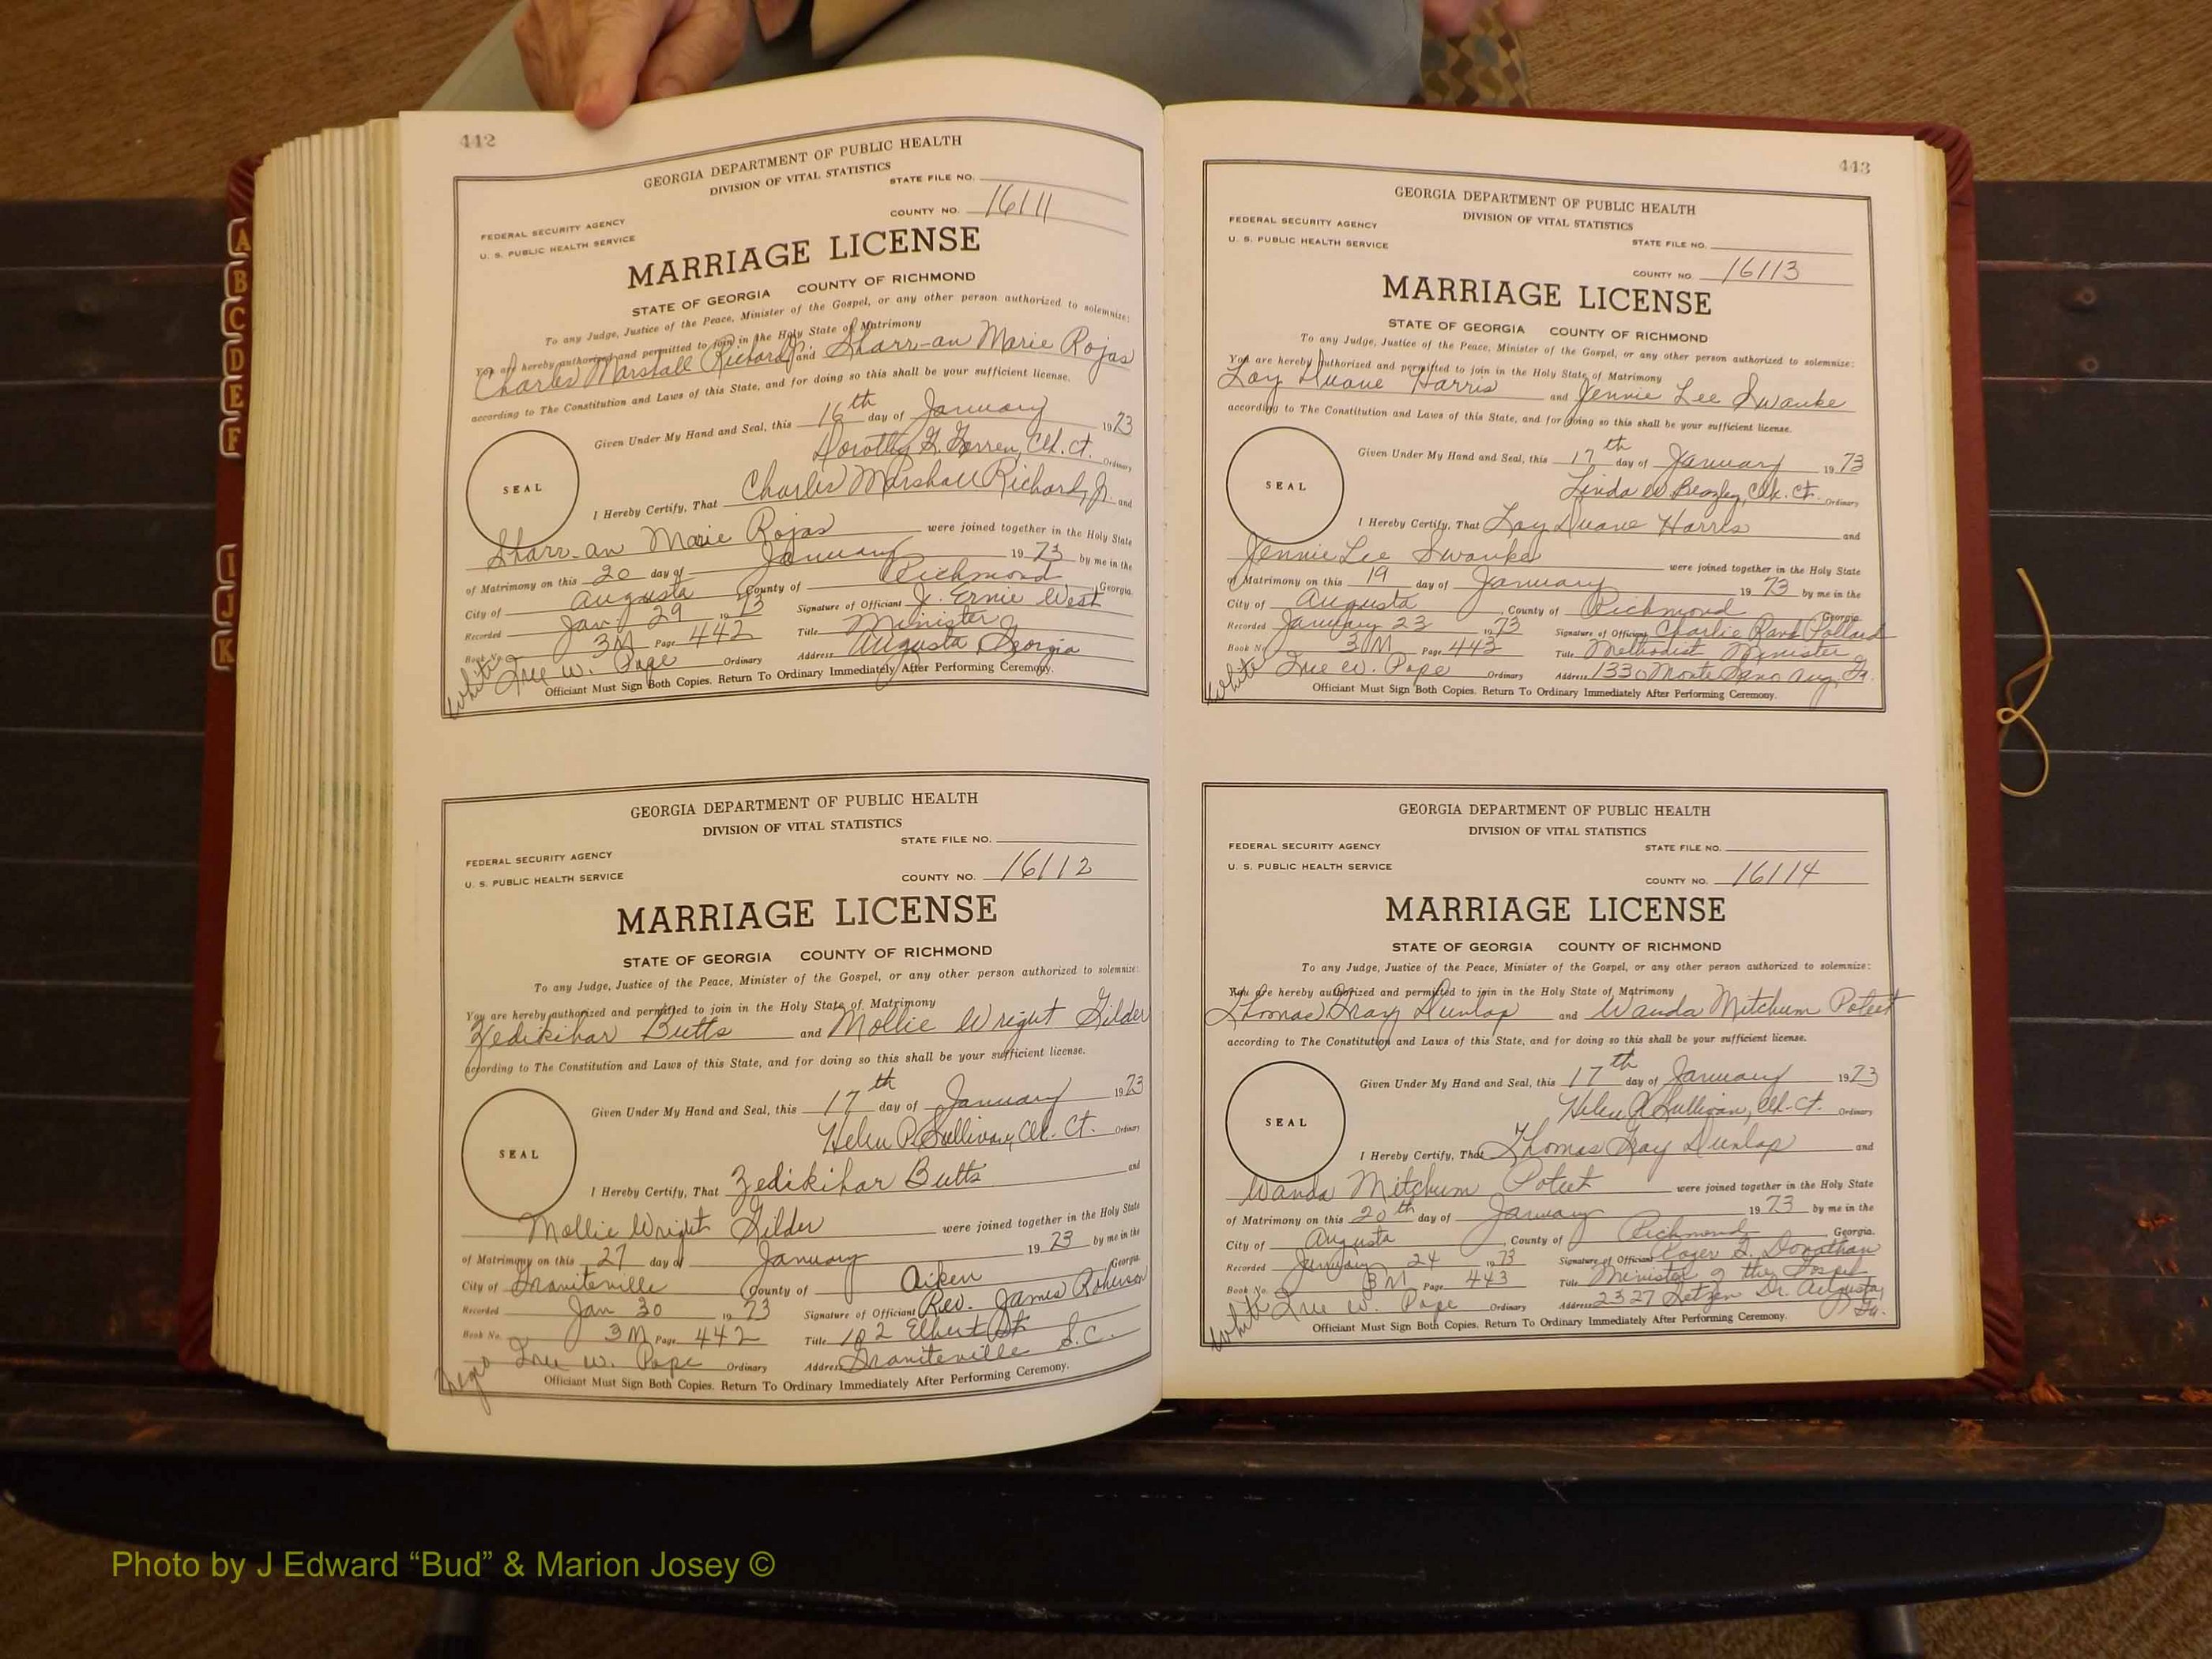 442
GEORGIA DEPARTMENT OF PUBLIC HEALTH
DIVISION OF VITAL STATISTICS
STATE FILE NO.
COUNTY NO. 16111
FEDERAL SECURITY AGENCY
U. S. PUBLIC HEALTH SERVICE
MARRIAGE LICENSE
STATE OF GEORGIA COUNTY OF RICHMOND
To any Judge, Justice of the Peace, Minister of the Gospel, or any other person authorized to solemnize:
You are hereby authorized and permitted to join in the Holy State of Matrimony
Charles Marshall Richard Jr. and Sharr-an Marie Rojas
according to The Constitution and Laws of this State, and for doing so this shall be your sufficient license.
Given Under My Hand and Seal, this 16th day of January 1973
Dorothy Clk. Ct. Ordinary
SEAL
I Hereby Certify, That Charles Marshall Richard, Jr. and
Sharr-an Marie Rojas were joined together in the Holy State
of Matrimony on this 20 day of January 1973 by me in the
City of Augusta, County of Richmond, Georgia.
Recorded Jan. 29 1973 Signature of Officiant J. Ernie West
Book No. 3M Page 442 Title Minister
White Ordinary Address Augusta Georgia
Officiant Must Sign Both Copies. Return To Ordinary Immediately After Performing Ceremony.
GEORGIA DEPARTMENT OF PUBLIC HEALTH
DIVISION OF VITAL STATISTICS
STATE FILE NO.
FEDERAL SECURITY AGENCY
U. S. PUBLIC HEALTH SERVICE
COUNTY NO. 16112
MARRIAGE LICENSE
STATE OF GEORGIA COUNTY OF RICHMOND
To any Judge, Justice of the Peace, Minister of the Gospel, or any other person authorized to solemnize:
You are hereby authorized and permitted to join in the Holy State of Matrimony
Zedikihar Butts and Mollie Wright Gilder
according to The Constitution and Laws of this State, and for doing so this shall be your sufficient license.
Given Under My Hand and Seal, this 17th day of January 1973
Helen P. Sullivan, Clk. Ct. Ordinary
SEAL
I Hereby Certify, That Zedikihar Butts and
Mollie Wright Gilder were joined together in the Holy State
of Matrimony on this 27 day of January 1973 by me in the
City of Graniteville County of Aiken Georgia.
Recorded Jan 30 1973 Signature of Officiant Rev. James
Book No. 3M Page 442 Title 102 Elbert St.
Negro W. Pope Ordinary Address Graniteville S.C.
Officiant Must Sign Both Copies. Return To Ordinary Immediately After Performing Ceremony.
443
GEORGIA DEPARTMENT OF PUBLIC HEALTH
DIVISION OF VITAL STATISTICS
FEDERAL SECURITY AGENCY
U. S. PUBLIC HEALTH SERVICE
STATE FILE NO.
COUNTY NO. 16113
MARRIAGE LICENSE
STATE OF GEORGIA COUNTY OF RICHMOND
To any Judge, Justice of the Peace, Minister of the Gospel, or any other person authorized to solemnize:
You are hereby authorized and permitted to join in the Holy State of Matrimony
Loy Duane Harris and Jennie Lee Swanke
according to The Constitution and Laws of this State, and for doing so this shall be your sufficient license.
Given Under My Hand and Seal, this 17th day of January 1973
Linda W. Beazley, Clk. Ct. Ordinary
SEAL
I Hereby Certify, That Loy Duane Harris and
Jennie Lee Swanke were joined together in the Holy State
of Matrimony on this 19 day of January 1973 by me in the
City of Augusta, County of Richmond Georgia.
Recorded January 23 1973 Signature of Officiant Charlie Pollard
Book No. 3M Page 443 Title Methodist Minister
White W. Pope Ordinary Address 1330 Monte Sano Aug, Ga.
Officiant Must Sign Both Copies. Return To Ordinary Immediately After Performing Ceremony.
GEORGIA DEPARTMENT OF PUBLIC HEALTH
DIVISION OF VITAL STATISTICS
FEDERAL SECURITY AGENCY
STATE FILE NO.
U. S. PUBLIC HEALTH SERVICE
COUNTY NO. 16114
MARRIAGE LICENSE
STATE OF GEORGIA COUNTY OF RICHMOND
To any Judge, Justice of the Peace, Minister of the Gospel, or any other person authorized to solemnize:
You are hereby authorized and permitted to join in the Holy State of Matrimony
Thomas Gray Dunlap and Wanda Mitchum Poteet
according to The Constitution and Laws of this State, and for doing so this shall be your sufficient license.
Given Under My Hand and Seal, this 17th day of January 1973
Helen P. Sullivan, Clk. Ct. Ordinary
SEAL
I Hereby Certify, That Thomas Gray Dunlap and
Wanda Mitchum Poteet were joined together in the Holy State
of Matrimony on this 20th day of January 1973 by me in the
City of Augusta, County of Richmond Georgia.
Recorded January 24 1973 Signature of Officiant Roger Donathan
Book No. 3M Page 443 Title Minister of the Gospel
White W. Pope Ordinary Address 2327 Dr. Augusta, Ga.
Officiant Must Sign Both Copies. Return To Ordinary Immediately After Performing Ceremony.
A
B
C
D
E
F
I
J
K
Photo by J Edward “Bud” & Marion Josey ©